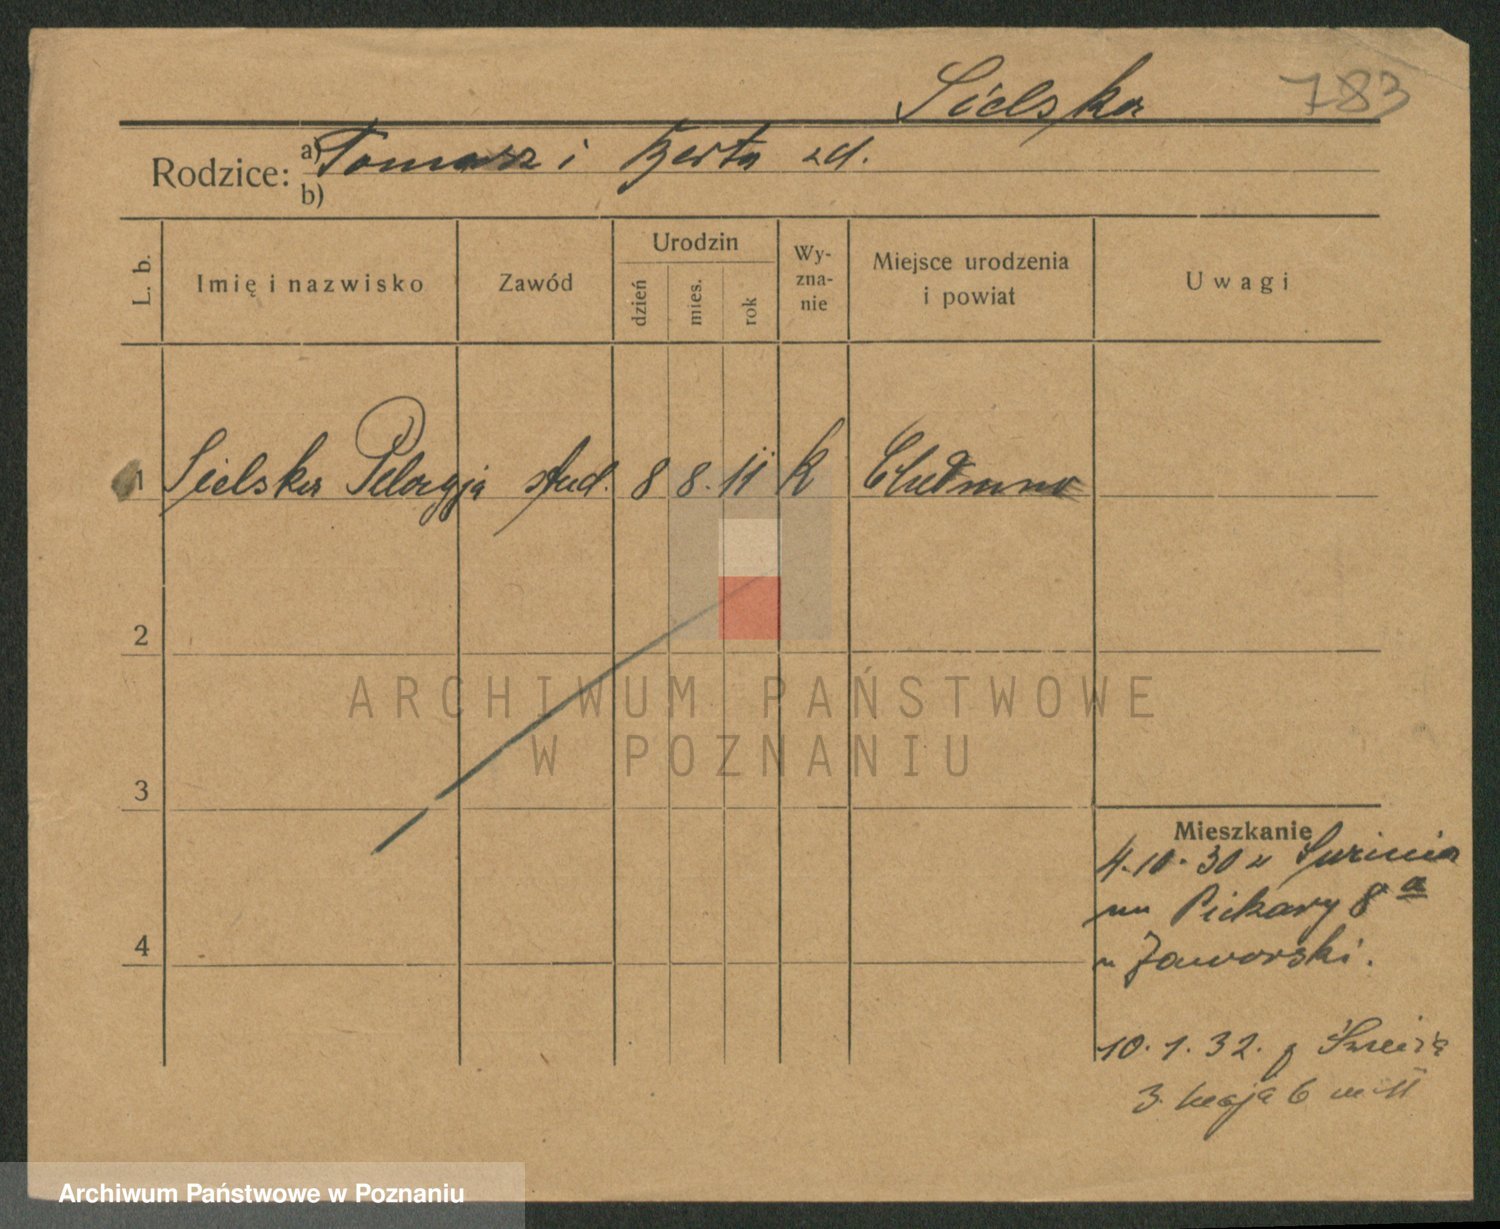 Sielska 783
Rodzice: a) Tomasz i Berta zd.
b)
L. b. Imię i nazwisko Zawód Urodzin dzień mies. rok Wy-zna-nie Miejsce urodzenia i powiat Uwagi
1 Sielska Pelagja stud. 8 8. 11 k Chełmno
2
ARCHIWUM PAŃSTWOWE
W POZNANIU
3
Mieszkanie
4.10.30
Piekary 8a
4
Jaworski.
10.1.32.
3 maja 6
Archiwum Państwowe w Poznaniu